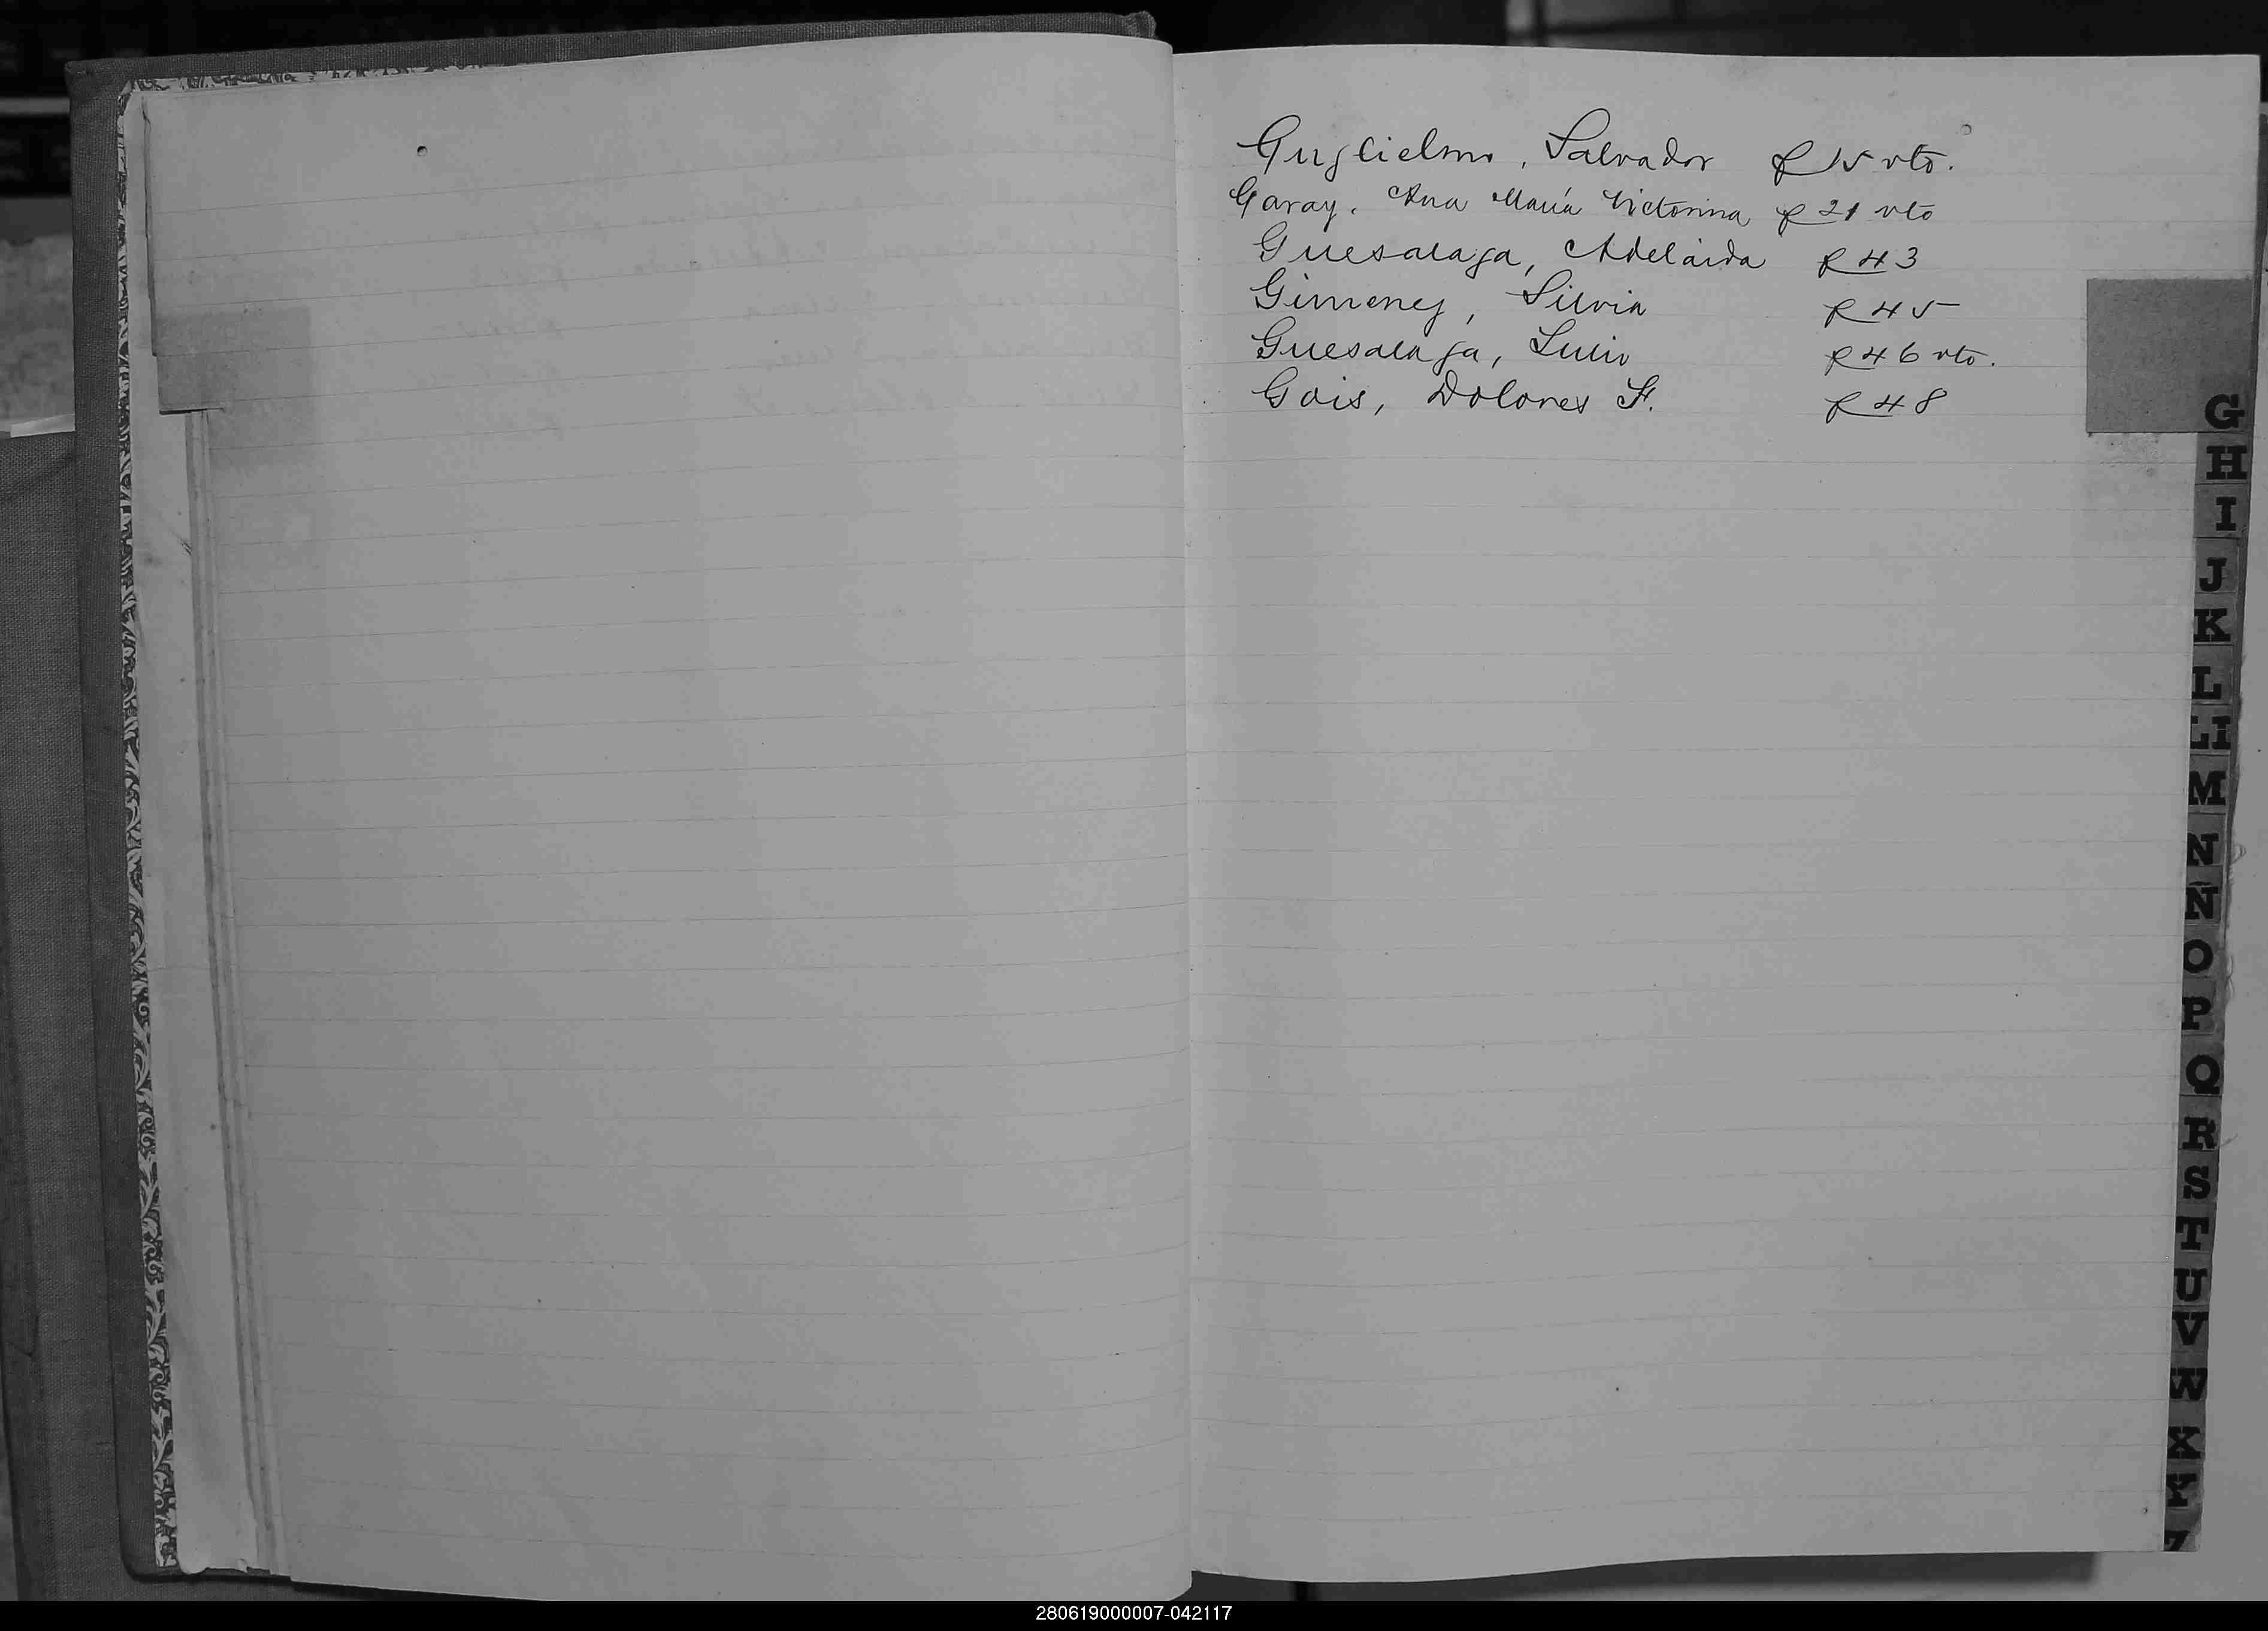 Guglielmo, Salvador f 15 vto.
Garay, Ana María Victorina f 21 vto
Guesalaga, Adelaida f 43
Gimenez, Silvia f 45
Guesalaga, Lucio f 46 vto.
Gois, Dolores F. f 48
G
H
I
J
K
L
Ll
M
N
Ñ
O
P
Q
R
S
T
U
V
W
X
Y
Z
280619000007-042117